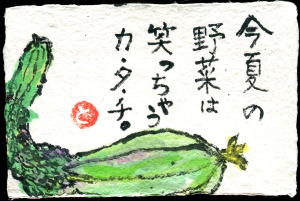 今夏の
野菜は
笑っちゃう
カ・タ・チ。